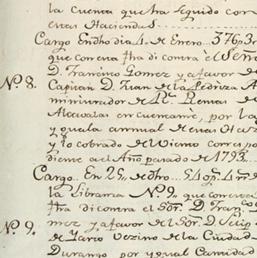 la Cuenta que ha seguido con
estas Haciendas
Cargo En dho dia 4. de Enero. 376 p.3
que con esta fha di contra el Señ
D. Francisco Gomez y a favor de
N.º 8. Capitan D. Juan de la Pedriza A
ministrador de R.s Rentas de
Alcavalas en Cuencamé, por la
yguala annual de
y lo cobrado de Viento corres po
diente a el Año pasado de 1793.
Cargo. En 29. de
la Libranza N.º 9. que con esta
fha di contra el Sor. D. Fran.co
N.º 9. mez y a favor del Sor. D. Felip
de Yarto Vezino de la Ciudad
Durango por ygual Cantidad